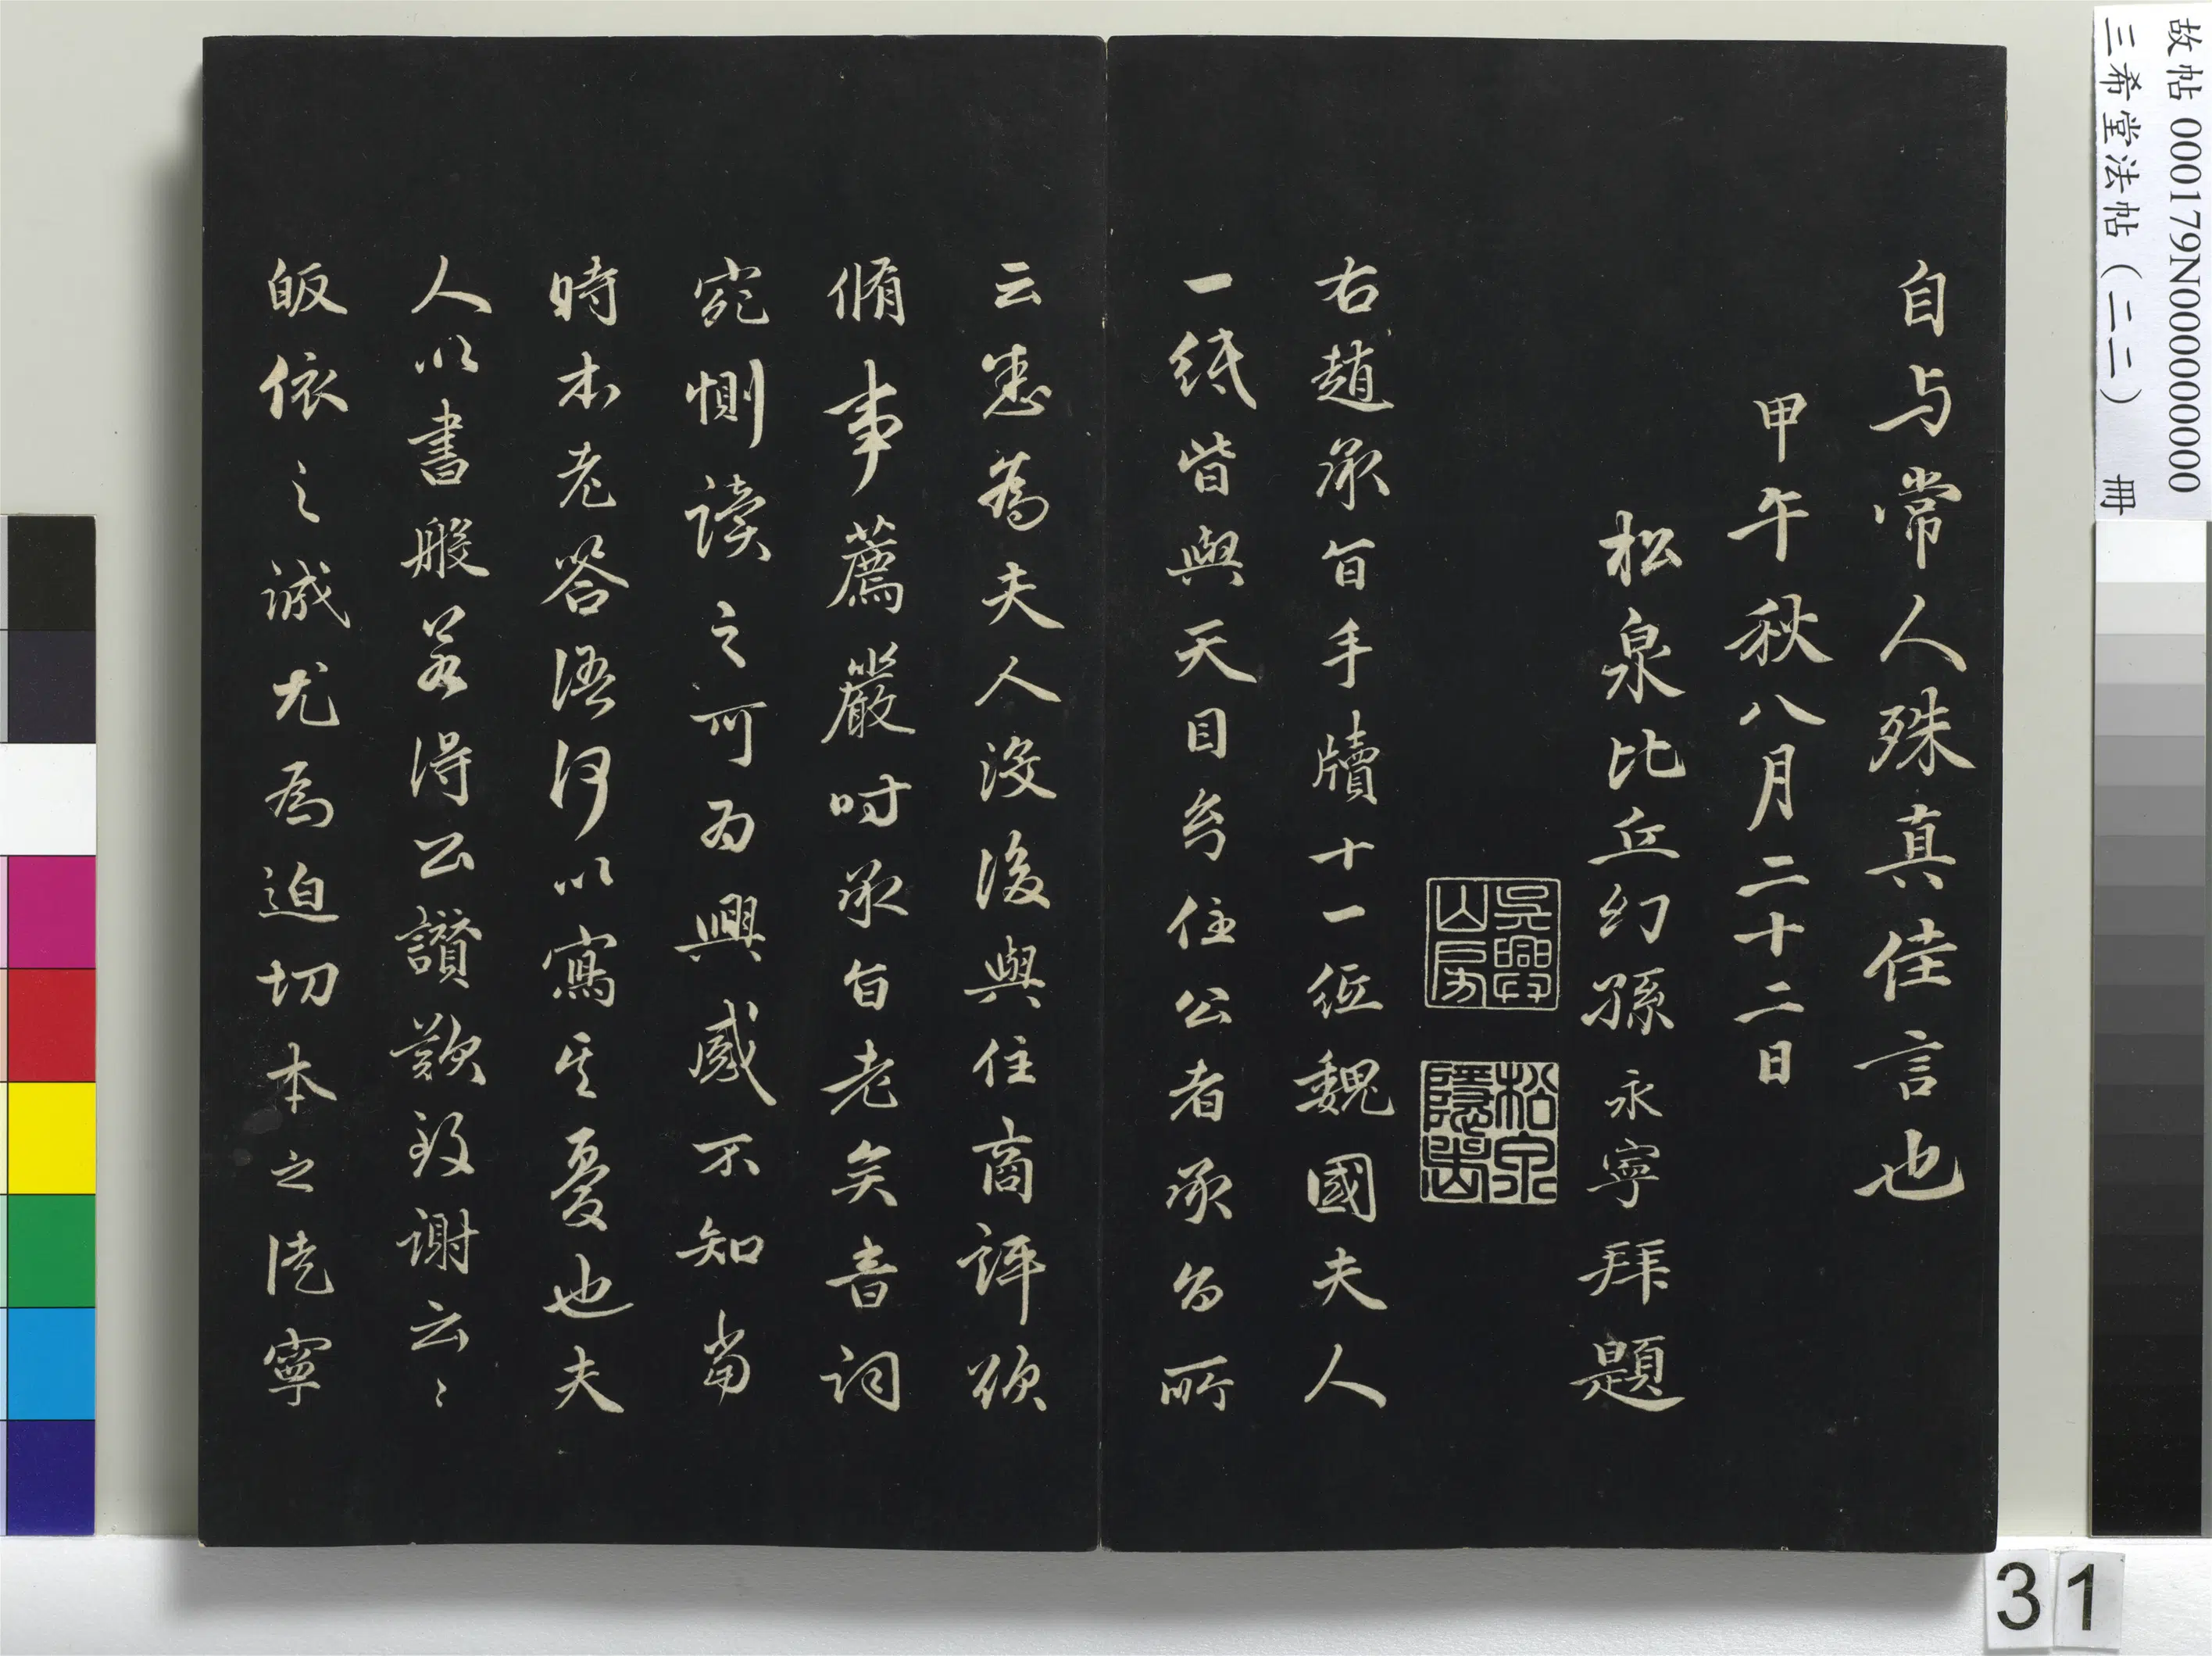 自与常人殊真佳言也
甲午秋八月二十二日
松泉比丘幻孫永寧拜題
吳興山房
松泉隱畫
右趙承旨手牘十一紙魏國夫人
一紙皆與天目与住公者承旨所
云悉為夫人没後與住商評欲
脩事薦嚴時承旨老矣音詞
宛惻讀之可為興感不知當
時本老答語何以寫其憂也夫
人以書般若得公讃歎致謝云〻
皈依之誠尤為迫切本之徒寧
故帖 000179N000000000
三希堂法帖（二二） 冊
31